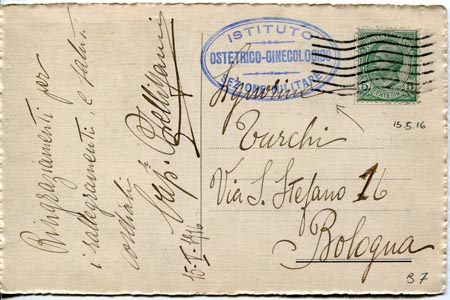 Ringraziamenti per
i rallegramenti, e saluti
cordiali
15-V-1916
ISTITUTO
OSTETRICO-GINECOLOGICO
SEZIONE MILITARE
Signorina
Turchi
Via S. Stefano 16
Bologna
15.5.16
B7